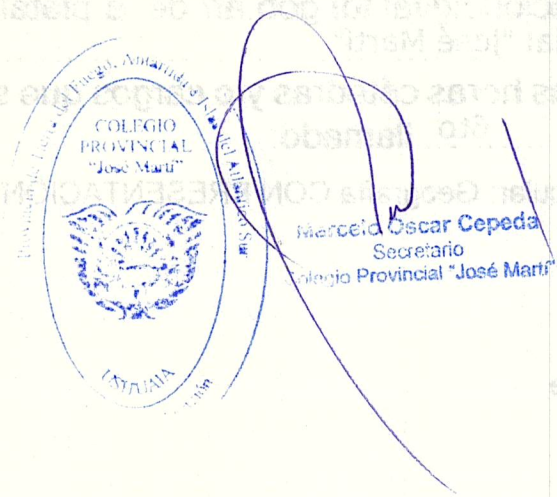 de Tierra del Fuego, Antártida e Islas del Atlántico Sur
COLEGIO
PROVINCIAL
"José Martí"
USHUAIA
Marcelo Oscar Cepeda
Secretario
Colegio Provincial "José Martí"